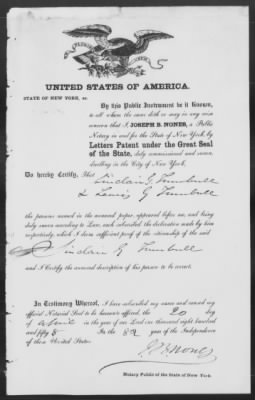 UNITED STATES OF AMERICA.
STATE OF NEW YORK, ss.
By this Public Instrument be it known,
to all whom the same doth or may in any wise
concern that I JOSEPH B. NONES, a Public
Notary in and for the State of New York, by
Letters Patent under the Great Seal
of the State, duly commissioned and sworn,
dwelling in the City of New York,
Do hereby Certify, That
Sinclair G. Trumbull
& Lewis G Trumbull
the persons named in the annexed paper, appeared before me, and being
duly sworn according to Law, each subscribed the declaration made by him
respectively, which I deem sufficient proof of the citizenship of the said
Sinclair G Trumbull
and I Certify the annexed description of his person to be correct.
In Testimony Whereof, I have subscribed my name and caused my
official Notarial Seal to be hereunto affixed, the 20 day
of April in the year of our Lord one thousand eight hundred
and fifty 8 In the 82 year of the Independence
of these United States.
J B Nones
Notary Public of the State of New York.